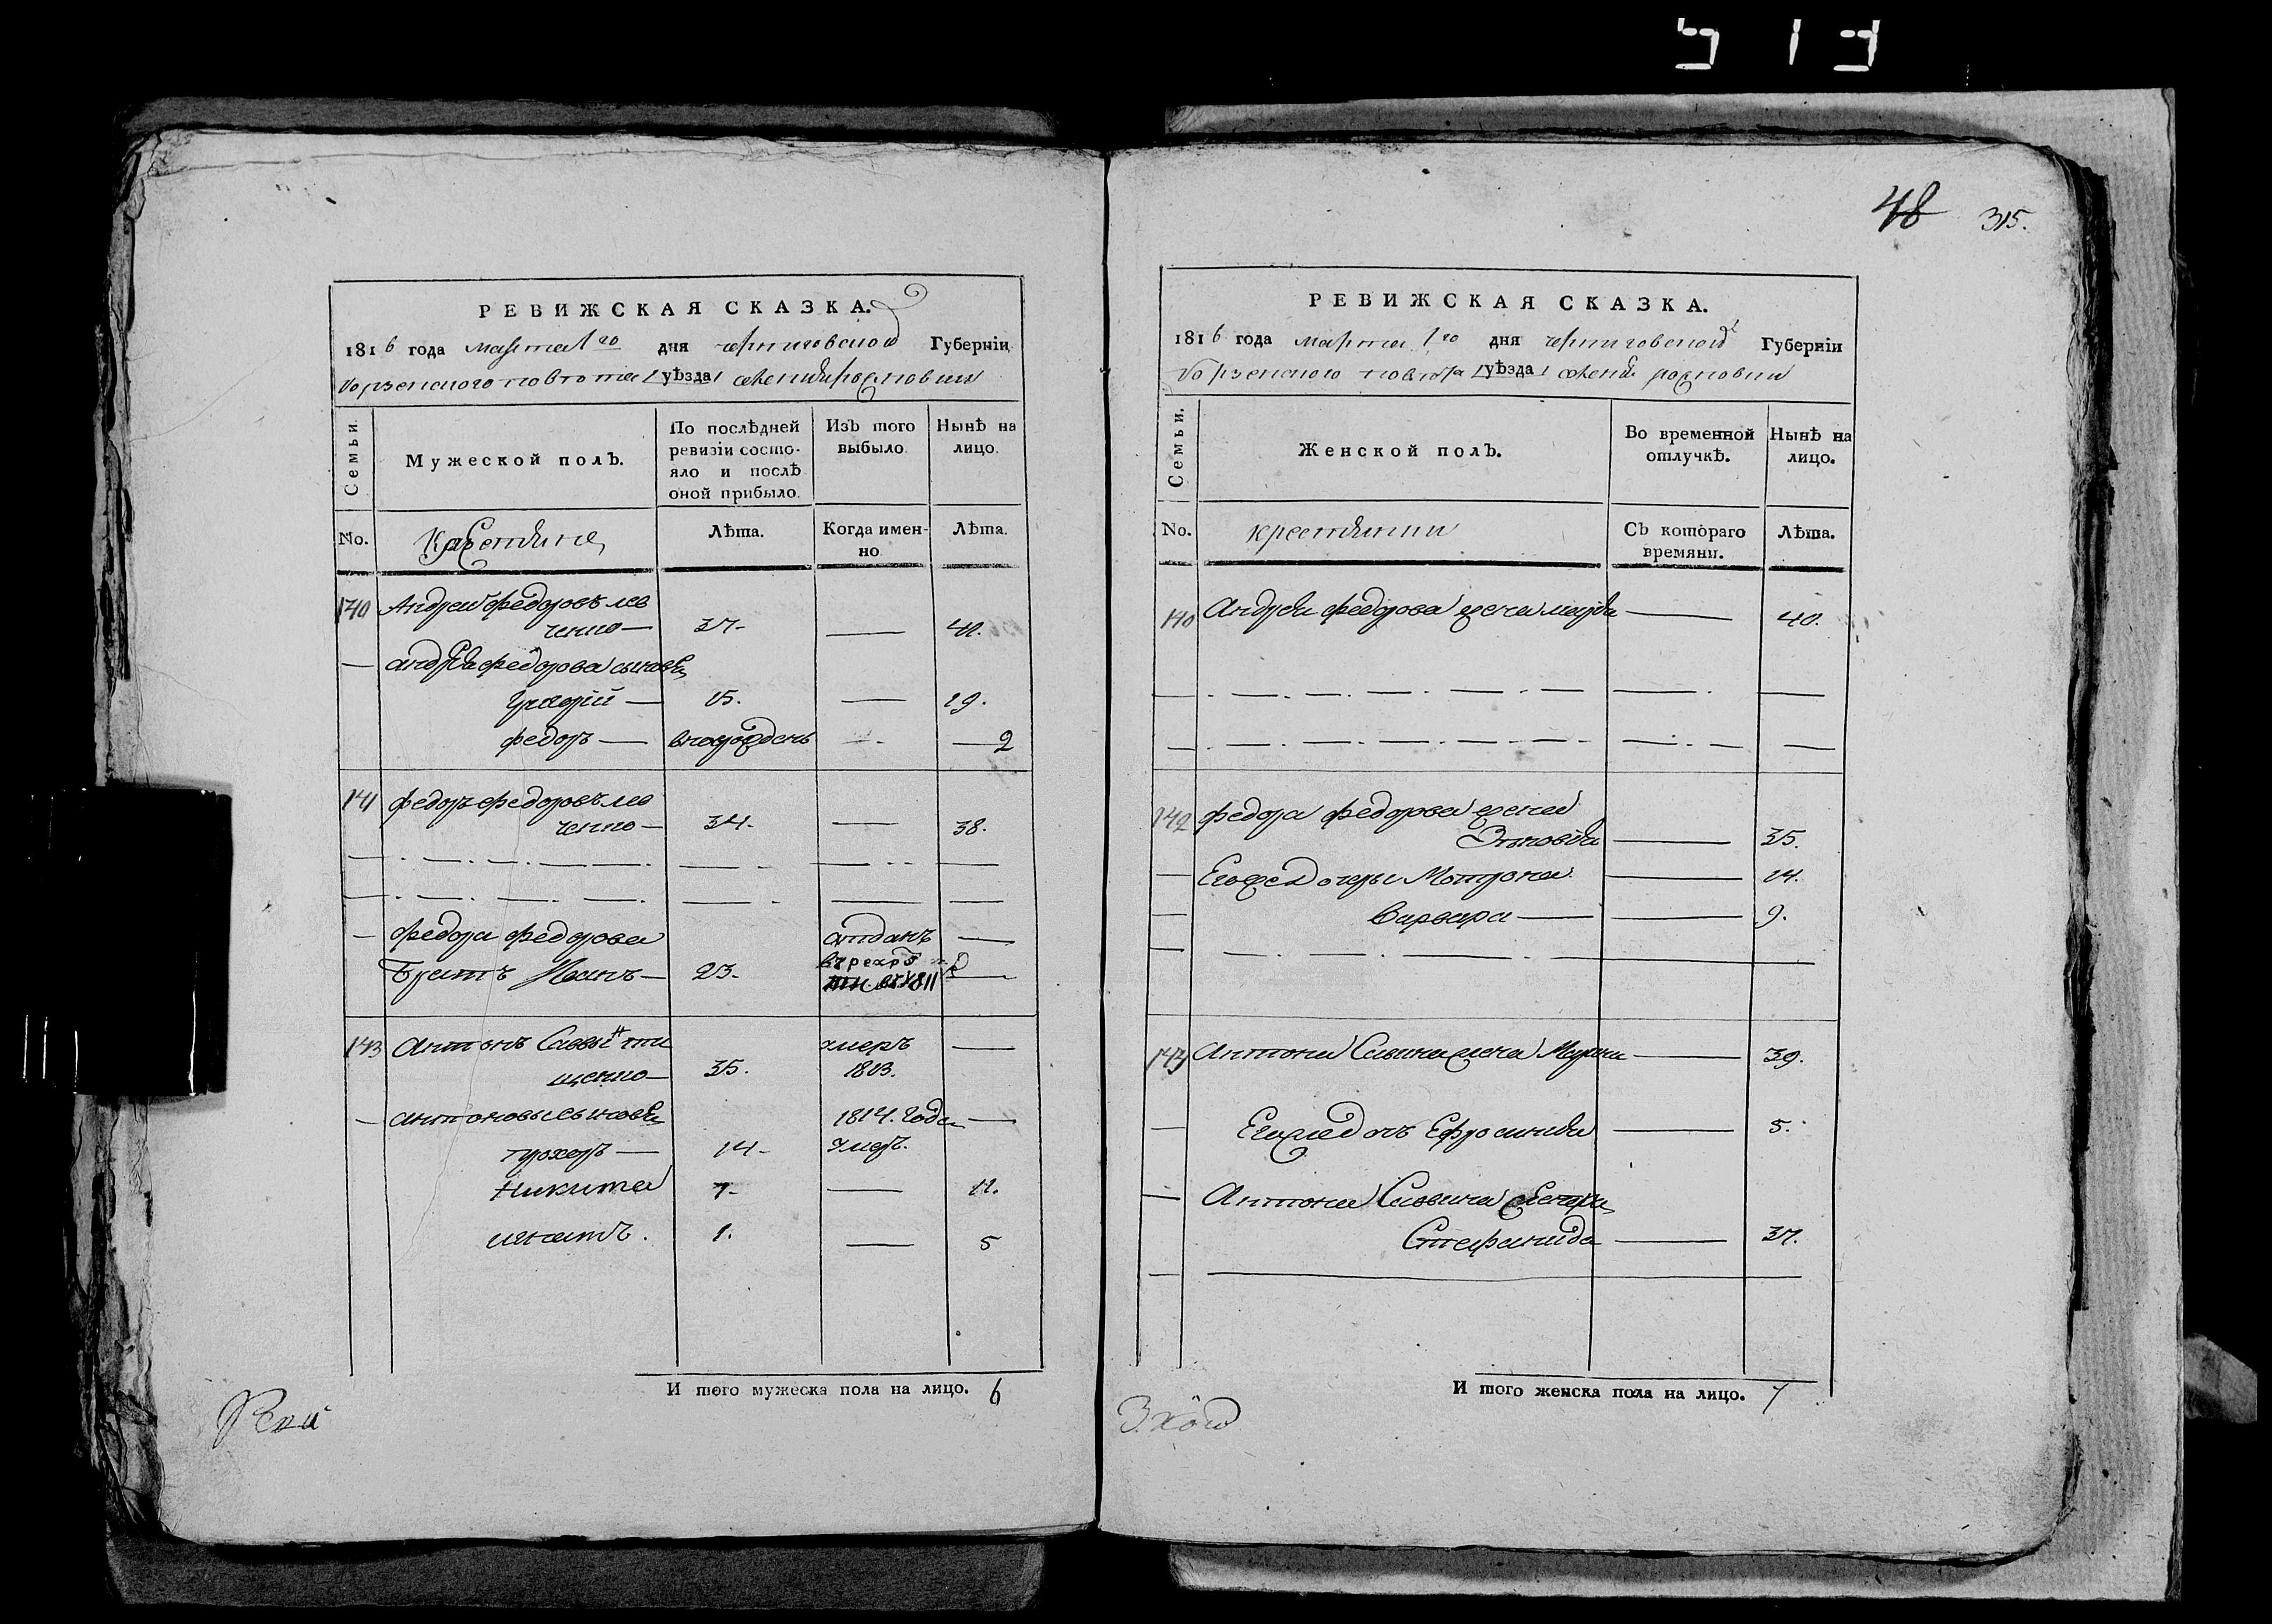 48 315.
РЕВИЖСКАЯ СКАЗКА.
1816 года марта 1го дня черниговской Губерніи
борзенского повета уѣзда
Семьи.
Мужеской полъ.
По послѣдней ревизіи состо-
яло и послѣ
оной прибыло.
Изъ того
выбыло.
Нынѣ на
лицо.
No.
Крестяне
Лѣта.
Когда имен-
но
Лѣта.
140 Андрей Федоровъ лев
ченко — 37. — 41.
— андрея федорова сыновья
Григорій — 15. — 19.
федоръ — вновьрожденъ — 2
141 федоръ федоровъ лев
ченко — 34. — 38.
— федора федорова отданъ —
Братъ Иванъ — 23. 1811
143 Антонъ Саввы ти умеръ —
щенко — 35. 1813.
— антоновы сыновья 1814. года —
прохоръ — 14 - умеръ.
Никита 7 - — 11.
игнатъ. 1. — 5
И того мужеска пола на лицо. 6
РЕВИЖСКАЯ СКАЗКА.
1816 года марта 1го дня черниговской Губерніи
борзенского повета уѣзда
Семьи.
Женской полъ.
Во временной
отлучкѣ.
Нынѣ на
лицо.
No.
крестянки
Съ котораго
времяни.
Лѣта.
140 Андрея федорова жена — 40.
142 федора федорова жена
Зѣновія — 35.
— Егоже дочеры Мотрона — 14.
— Варвара — — 9.
143 Антона Савина жена Марина — 39.
— Егоже дочъ Ефросинія — 5.
— Антона Саввина сестра
Стефанида — 37.
И того женска пола на лицо. 7